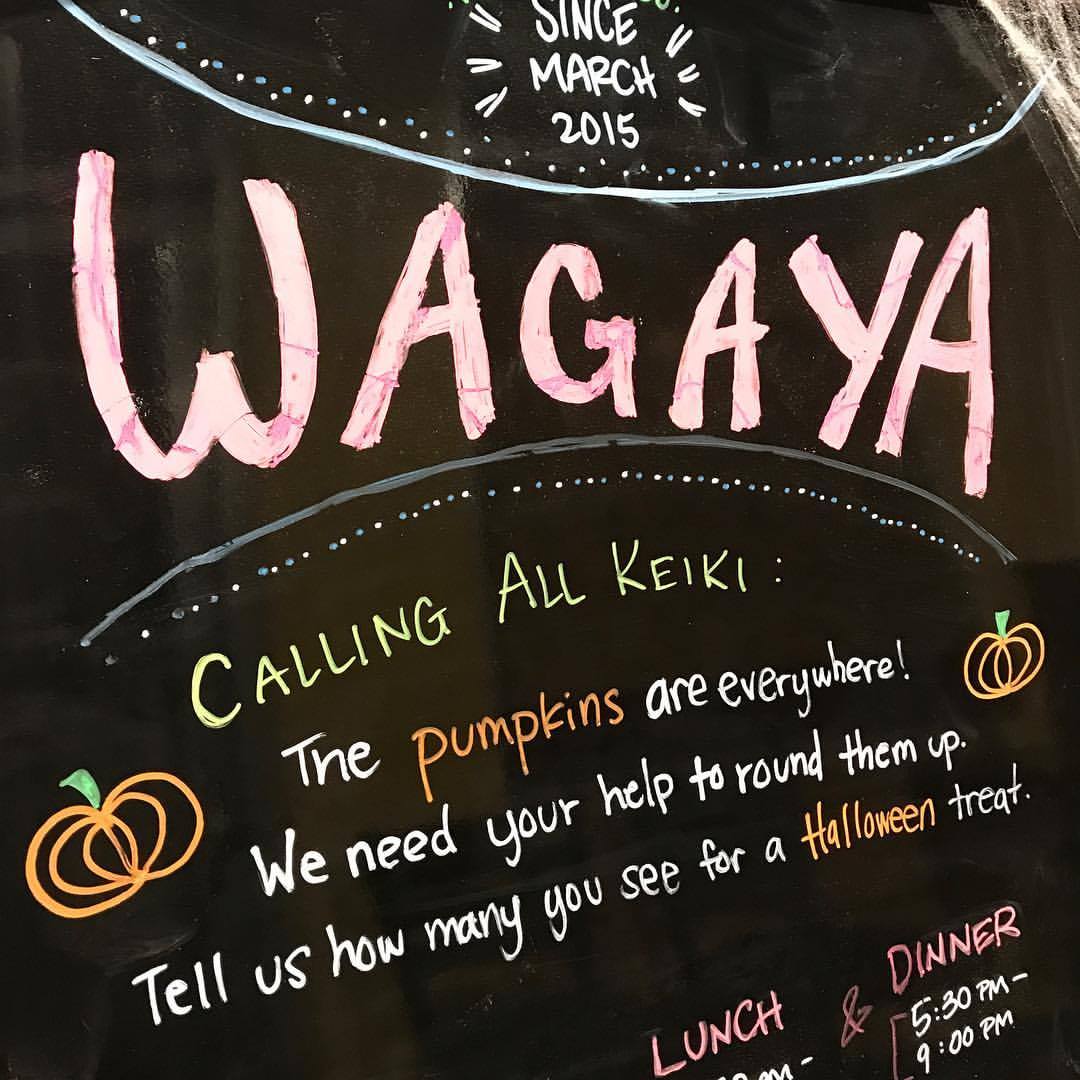 SINCE
MARCH
2015
WAGAYA
CALLING ALL KEIKI:
The pumpkins are everywhere!
We need your help to round them up.
Tell us how many you see for a Halloween treat.
LUNCH & DINNER
5:30 PM-
9:00 PM